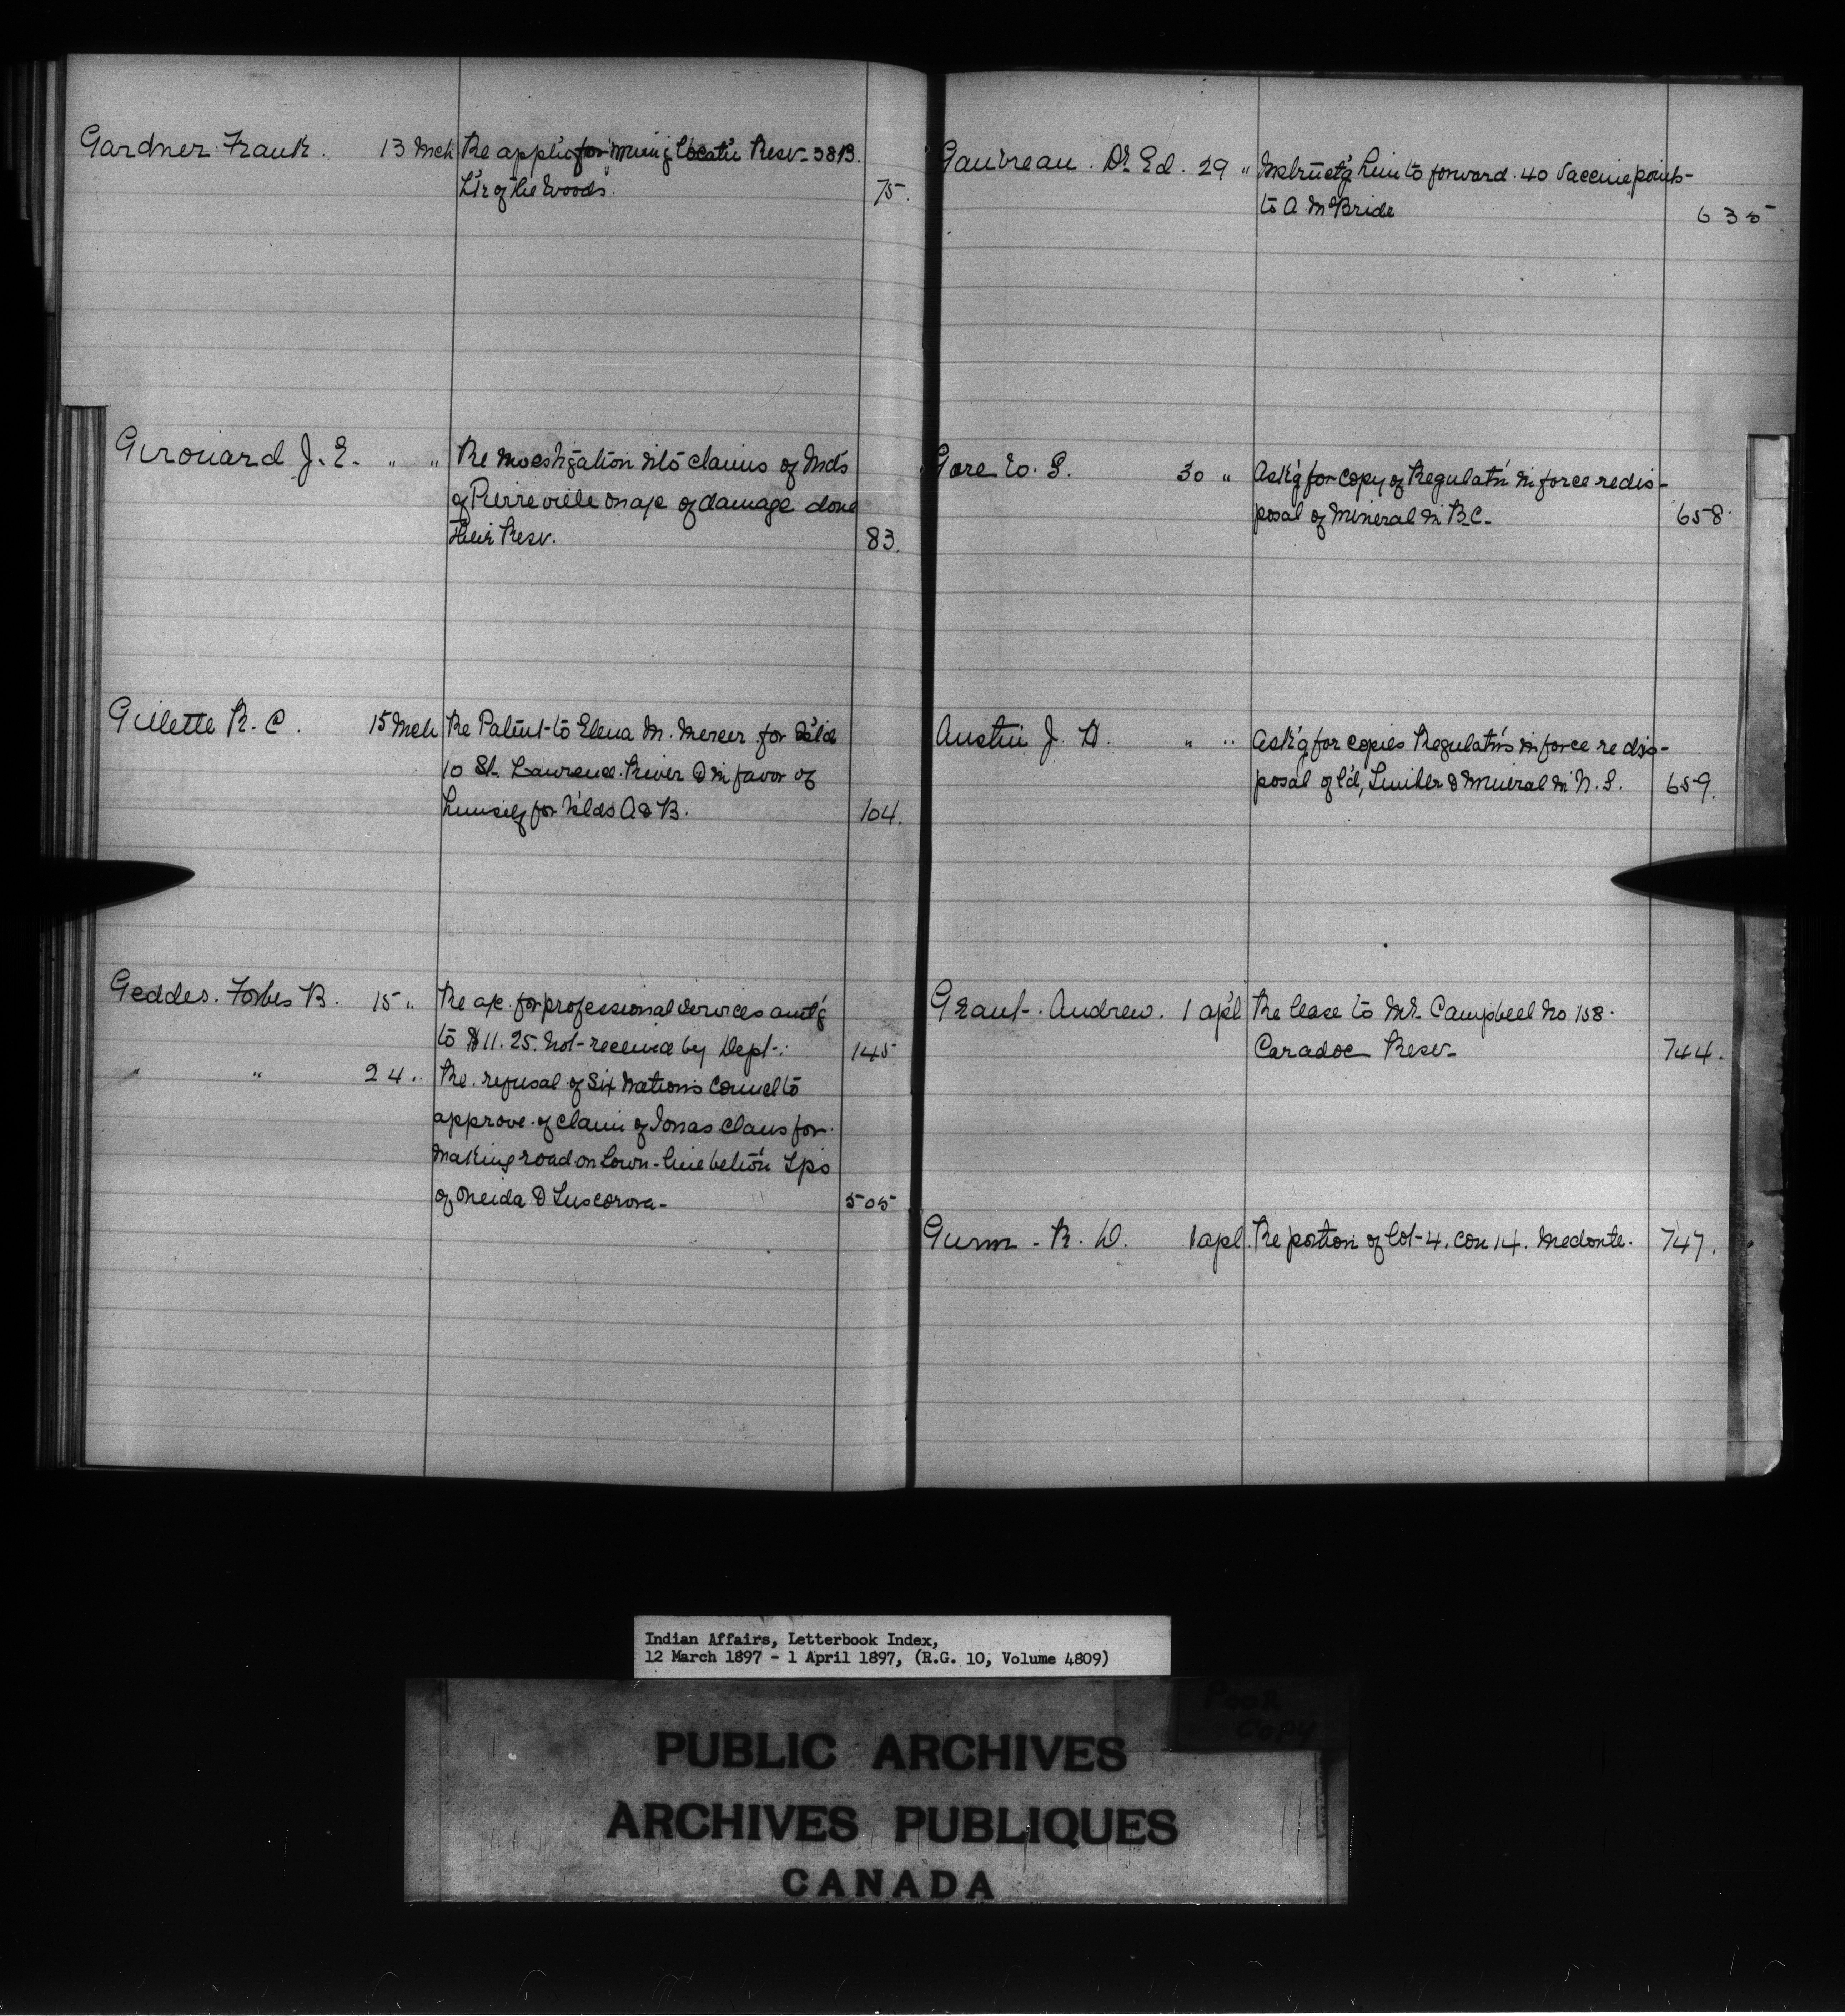 Gardner Frank. 13 Mch Re applic for mining locat'n Resv. 38B.
L'k of the Woods. 75.
Girouard J. E. " " Re investigation into claims of Ind's
of Pierreville on a/c of damage done
their Resv. 83.
Gillette R. C. 15 Mch Re Patent to Elena M. Mercer for Isl'd
10 St. Lawrence River & in favor of
himself for Islds A & B. 104.
Geddes. Forbes B. 15 " Re a/c for professional services amt'g
to $11.25. not received by Dept. 145
" " 24 " Re. refusal of Six Nations Council to
approve of claim of Jonas Claus for
making road on town-line betw'n Tps
of Oneida & Tuscorora. 505
Gauvreau. Dr. Ed. 29 " Instruct'g him to forward. 40 Vaccine points
to A. McBride 635
Gore W. S. 30 " Ask'g for copy of Regulat'n in force re dis-
posal of Mineral in B.C. 658.
Austin J. H. " " Ask'g for copies Regulat'ns in force re dis-
posal of l'd, Timber & Mineral in N. S. 659.
Grant. Andrew. 1 apl Re lease to Mr. Campbell No 158.
Caradoc Resv. 744.
Gunn. R. D. 1 apl. Re portion of lot 4. con 14. Medonte. 747.
Indian Affairs, Letterbook Index,
12 March 1897 - 1 April 1897, (R.G. 10, Volume 4809)
Poor
Copy
PUBLIC ARCHIVES
ARCHIVES PUBLIQUES
CANADA